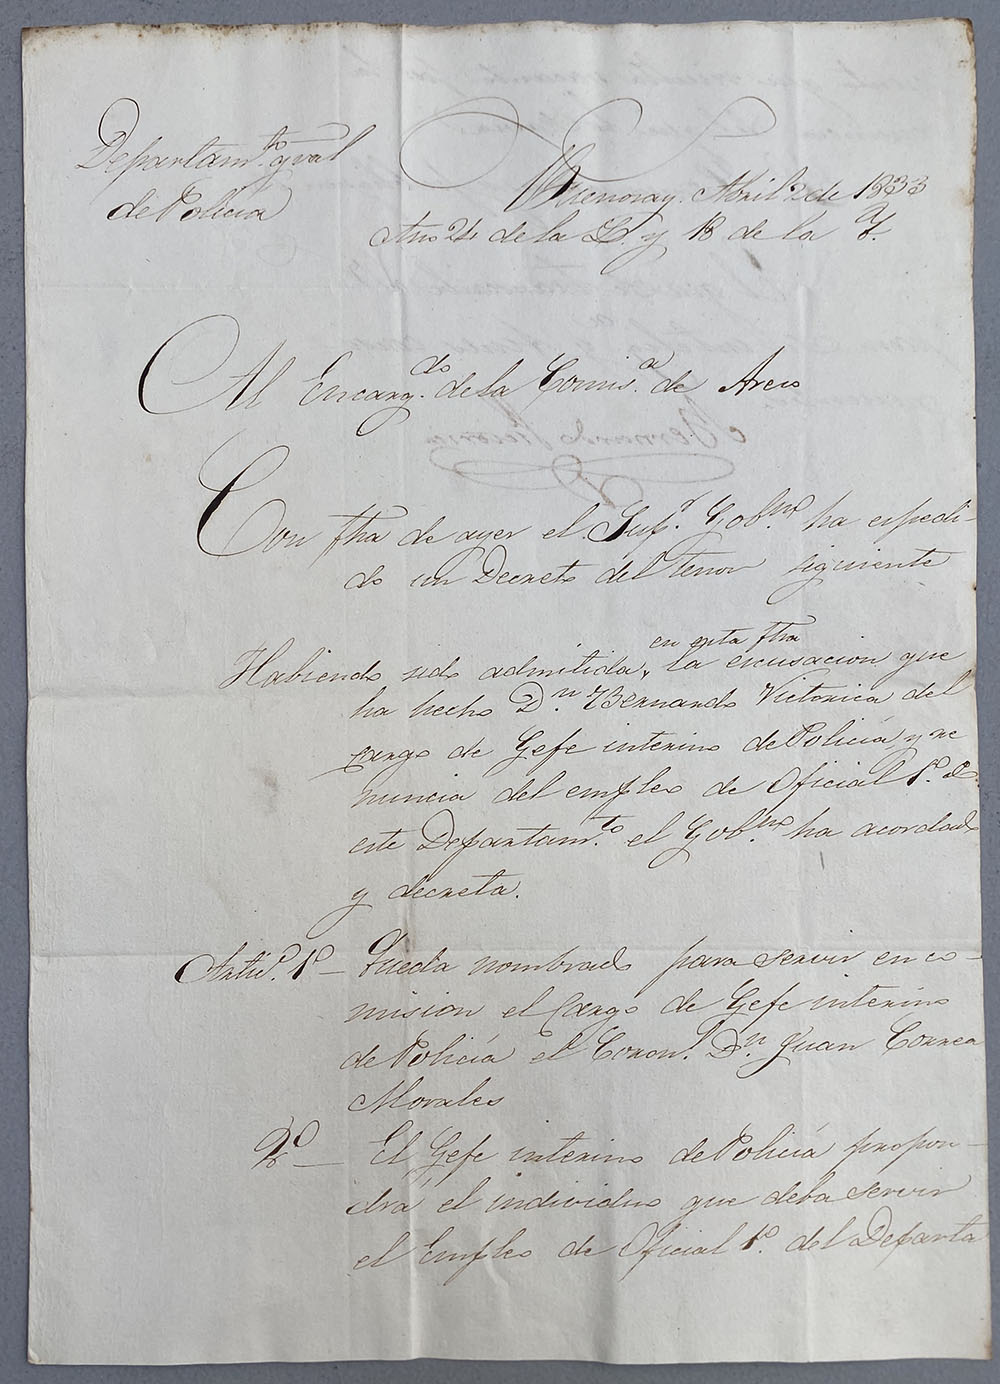 Departam.to gral
de Policia
Buenos ay.s Abril 2 de 1833
Año 24 de la L. y 18 de la Y.
Al Encarg.do de la Comis.a de Areco
Con fha de ayer el Sup.r Gob.no ha espedi-
do un Decreto del tenor siguiente
en esta fha
Habiendo sido admitida, la escusacion que
ha hecho D.n Bernardo Victorica del
cargo de Gefe interino de Policía, y re
nuncia del empleo de Oficial 1.o de
este Departam.to el Gob.no ha acordado
y decreta.
Artic.o 1.o — Queda nombrado para servir en co-
mision el cargo de Gefe interino
de Policía el Coron.l D.n Juan Correa
Morales
2.o — El Gefe interino de Policía propon-
drá el individuo que deba servir
el Empleo de Oficial 1.o del Departa